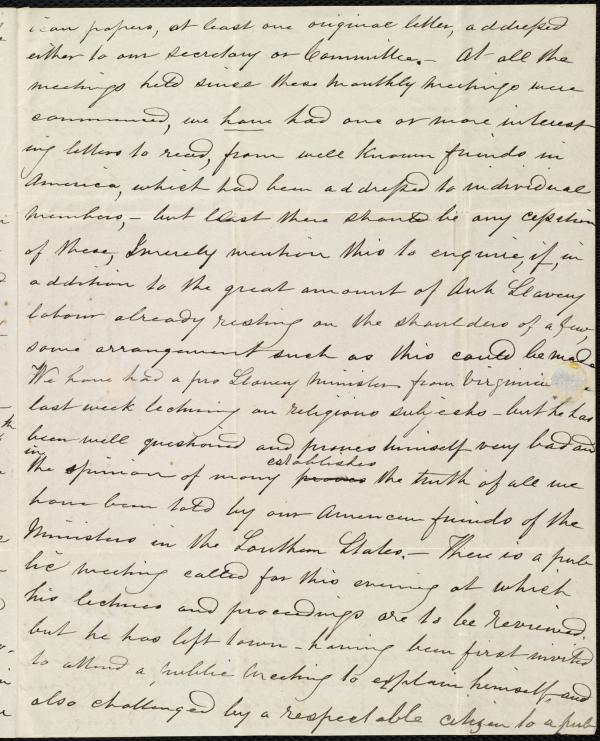 ican papers, at least one original letter, addressed
either to our secretary or Committee. – At all the
meetings held since these monthly meetings were
commenced, we have had one or more interest
ing letters to read, from well known friends in
America, which had been addressed to individual
members, – but least there should be any cessation
of these, I merely mention this to enquire, if, in
addition to the great amount of Anti Slavery
labour already resting on the shoulders of a few,
some arrangement such as this could be made
We have had a pro Slavery Minister from Virginia
last week lecturing on religious subjects – but he has
been well questioned and proves himself very bad and
in
the opinion of many proves establishes the truth of all we
have been told by our American friends of the
Ministers in the Southern States. – There is a pub
lic meeting called for this evening at which
his lectures and proceedings are to be reviewed.
but he has left town – having been first invited
to attend a public meeting to explain himself, and
also challenged by a respectable citizen to a pub